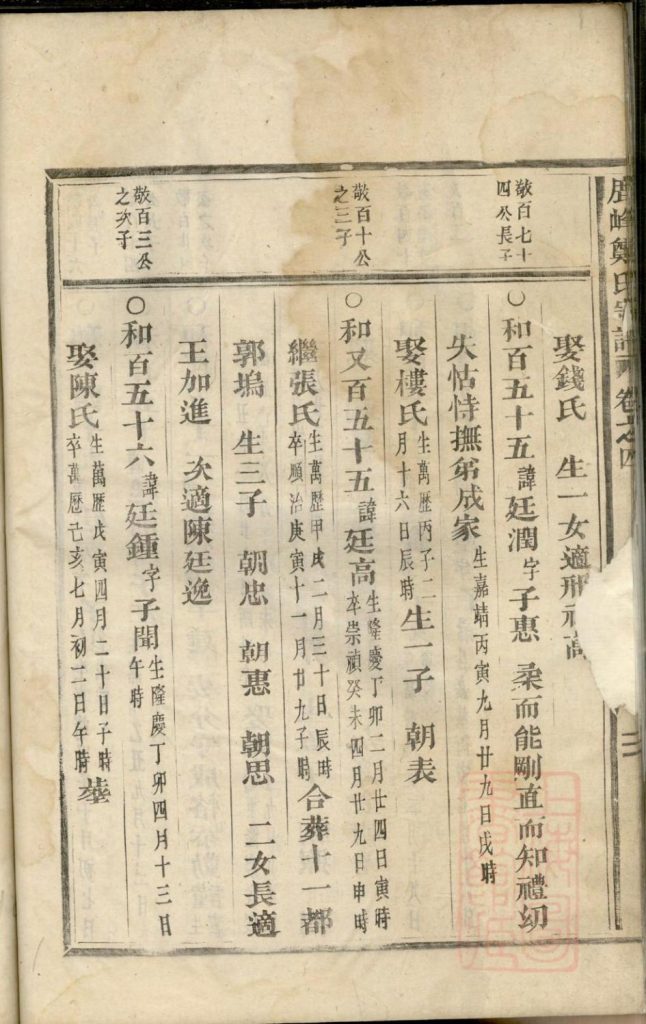 鄭氏宗譜 卷之四
娶錢氏 生一女適
敬百七十四公長子
○和百五十五諱廷潤字子惠 柔而能剛直而知禮幼
失怙恃撫弟成家生嘉靖丙寅九月廿九日戌時
娶樓氏生萬歷丙子二月十六日辰時生一子 朝表
敬百十公之三子
○和又百五十五諱廷高生隆慶丁卯二月廿四日寅時卒崇禎癸未四月廿九日申時
繼張氏生萬歷甲戌二月三十日辰時卒順治庚寅十一月廿九子時合葬十一都
郭塢 生三子 朝忠 朝惠 朝思 二女長適
王加進 次適陳廷逸
敬百三公之次子
○和百五十六諱廷鍾字子聞生隆慶丁卯四月十三日午時
娶陳氏生萬歷戊寅四月二十日子時卒萬歷己亥七月初二日午時葬